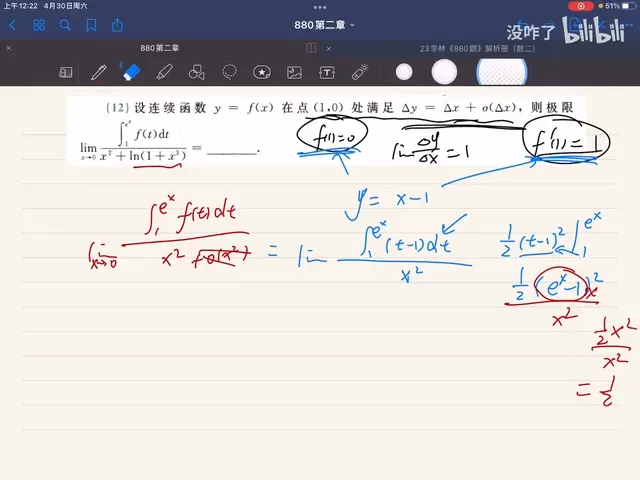 上午12:22 4月30日周六
51%
880第二章
没咋了 bilibili
880第二章
23李林《880题》解析册（数二）
(12) 设连续函数 y = f(x) 在点(1,0)处满足 Δy = Δx + o(Δx)，则极限
lim_{x→0} ∫_1^{e^x} f(t)dt / (x² + ln(1 + x³)) = ________.
f(1)=0
lim Δy/Δx = 1
f'(1) = 1
y = x-1
lim_{x→0} ∫_1^{e^x} f(t)dt / (x² + o(x²)) = lim ∫_1^{e^x} (t-1)dt / x²
1/2 (t-1)² |_1^{e^x}
1/2 (e^x-1)² / x²
x
1/2 x² / x²
= 1/2